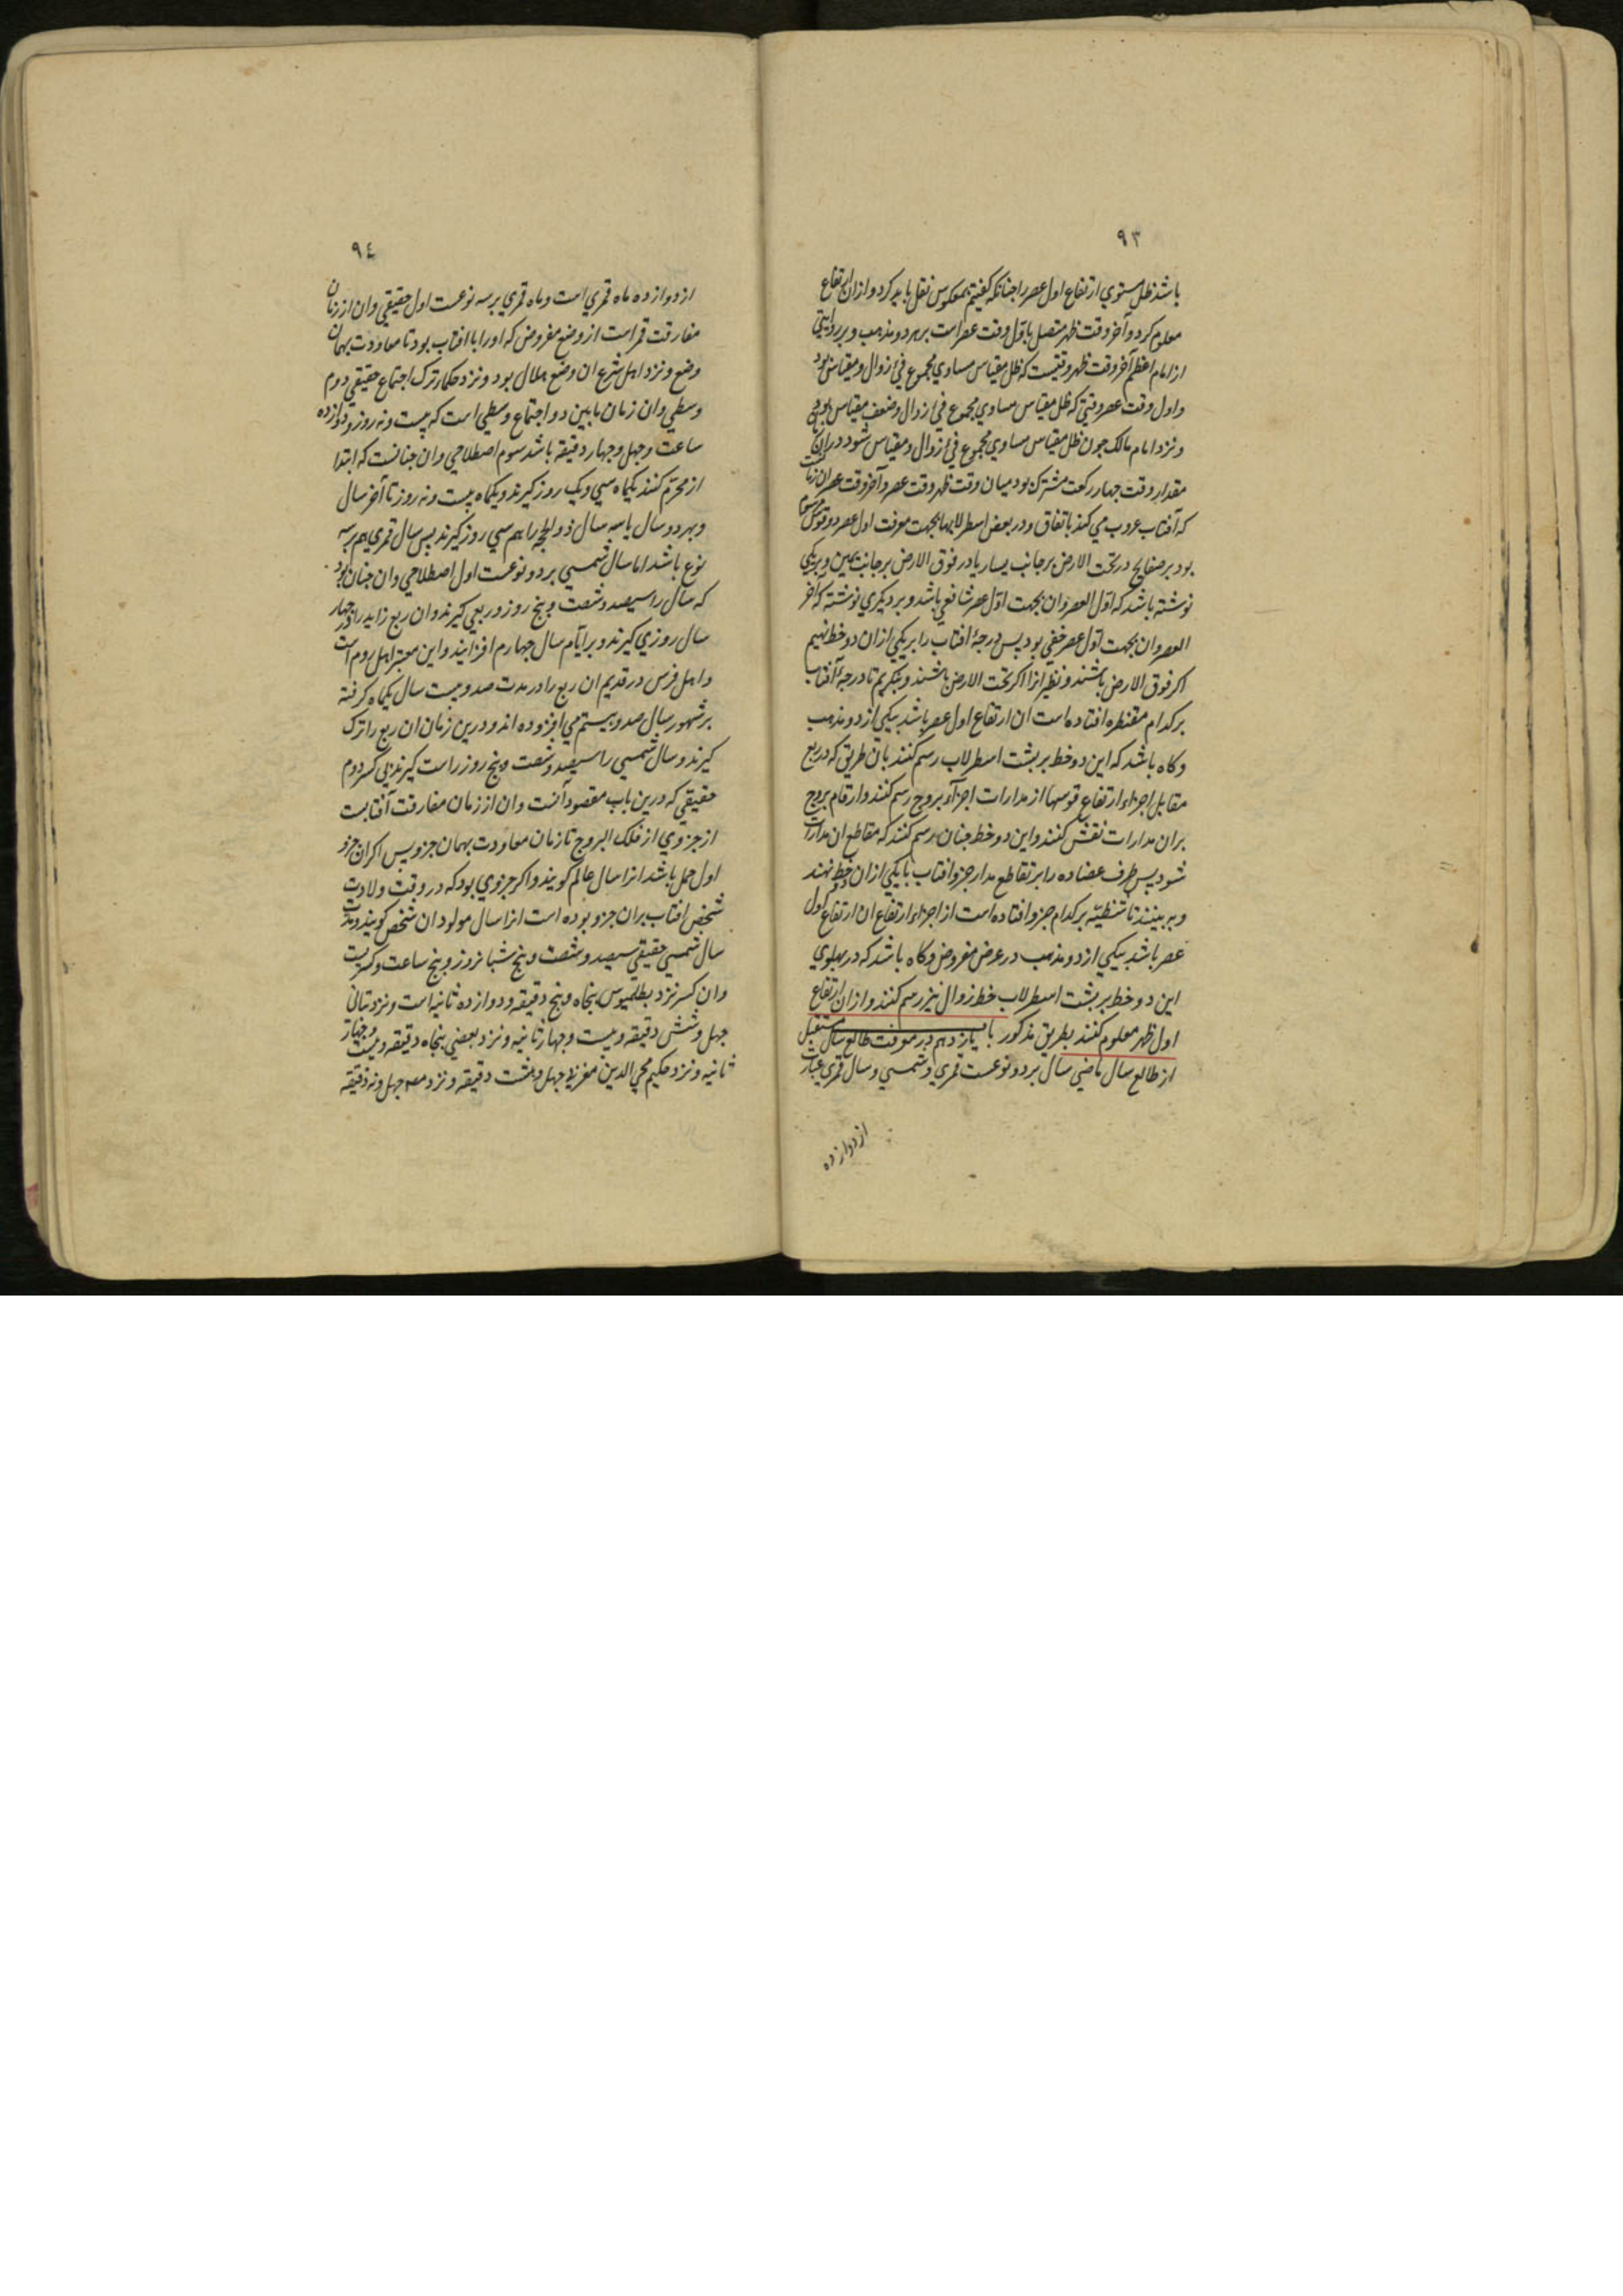 ٩٣
باشد ظل مستوي ارتفاع اول عصر را جنانكه كفتيم بمعكوس نقل بايد كرد و ازان ارتفاع
معلوم كرد و آخر وقت ظهر متصل باول وقت عصر است بر هر دو مذهب و بر روايتي
از امام اعظم آخر وقت ظهر وقتيست كه ظل مقياس مساوي مجموع في زوال و مقياس بود
و اول وقت عصر وقتي كه ظل مقياس مساوي مجموع في زوال و ضعف مقياس بود
و نزد امام مالك جون ظل مقياس مساوي مجموع في زوال و مقياس شود دران
مقدار وقت جهار ركعت مشترك بود ميان وقت ظهر و وقت عصر و آخر وقت عصر ان زمانست
كه آفتاب غروب مي كند باتفاق و در بعض اسطرلابها بجهت معرفت اول عصر دو قوس مرسوم
بود بر صفايح در تحت الارض بر جانب يسار يا در فوق الارض بر جانب يمين و بر يكي
نوشته باشد كه اول العصر و ان بجهت اول عصر شافعي باشد و بر ديكري نوشته كه آخر
العصر و ان بجهت اول عصر حنفي بود پس درجۀ افتاب را بر يكي ازان دو خط نهيم
اكر فوق الارض باشند و نظير انرا اكر تحت الارض باشند و بنكريم تا درجۀ آفتاب
بر كدام مقنطره افتاده است ان ارتفاع اول عصر باشد بيكي از دو مذهب
و كاه باشد كه اين دو خط بر پشت اسطرلاب رسم كنند بان طريق كه در ربع
مقابل اجزاء ارتفاع قوسها از مدارات اجزآء بروج رسم كنند و ارقام بروج
بران مدارات نقش كنند و اين دو خط جنان رسم كنند كه مقاطع ان مدارات
شود پس طرف عضاده را بر تقاطع مدار جزو افتاب با يكي ازان دو خط نهند
و به بينند تا شظيه بر كدام جزو افتاده است از اجزاء ارتفاع ان ارتفاع اول
عصر باشد بيكي از دو مذهب در عرض مفروض و كاه باشد كه در پهلوي
اين دو خط بر پشت اسطرلاب خط زوال نيز رسم كنند و ازان ارتفاع
اول ظهر معلوم كنند بطريق مذكور باب يازدهم در معرفت طالع سال مستقبل
از طالع سال ماضي سال بر دو نوعست قمري و شمسي و سال قمري عبارت
از دوازده
٩٤
از دوازده ماه قمري است و ماه قمري بر سه نوعست اول حقيقي و ان از زمان
مفارقت قمر است از وضع مفروض كه او را با افتاب بود تا معاودت بهمان
وضع و نزد اهل شرع ان وضع هلال بود و نزد حكماء ترك اجتماع حقيقي دوم
وسطي و ان زمان مابين دو اجتماع وسطي است كه بيست و نه روز و دوازده
ساعت و جهل و جهار دقيقه باشد سوم اصطلاحي و ان جنانست كه ابتدا
از محرم كنند يكماه سي و يك روز كيرند و يكماه بيست و نه روز تا آخر سال
و بهر دو سال يا سه سال ذو الحجه را هم سي روز كيرند پس سال قمري هم بر سه
نوع باشد اما سال شمسي بر دو نوعست اول اصطلاحي و ان جنان بود
كه سال را سيصد و شصت و پنج روز و ربعي كيرند و ان ربع زايد را در جهار
سال روزي كيرند و بر ايام سال جهارم افزايند و اين معتبر اهل روم است
و اهل فرس در قديم ان ربع را در مدت صد و بيست سال يكماه كرفته
بر شهور سال صد و بيستم مي افزوده اند و درين زمان ان ربع را ترك
كيرند و سال شمسي را سيصد و شصت و پنج روز راست كيرند بي كسر دوم
حقيقي كه درين باب مقصود آنست و ان از زمان مفارقت آفتابست
از جزوي از فلك البروج تا زمان معاودت بهمان جزو پس اكر ان جزو
اول حمل باشد انرا سال عالم كويند و اكر جزوي بود كه در وقت ولادت
شخص افتاب بران جزو بوده است انرا سال مولود ان شخص كويند و مدت
سال شمسي حقيقي سيصد و شصت و پنج شبانروز و پنج ساعت و كسريست
و ان كسر نزد بطلميوس پنجاه و پنج دقيقه و دوازده ثانيه است و نزد بتاني
جهل و شش دقيقه و بيست و جهار ثانيه و نزد بعضي پنجاه دقيقه و بيست و جهار
ثانيه و نزد حكيم محيي الدين مغربي جهل و هشت دقيقه و نزد جهل و نه دقيقه